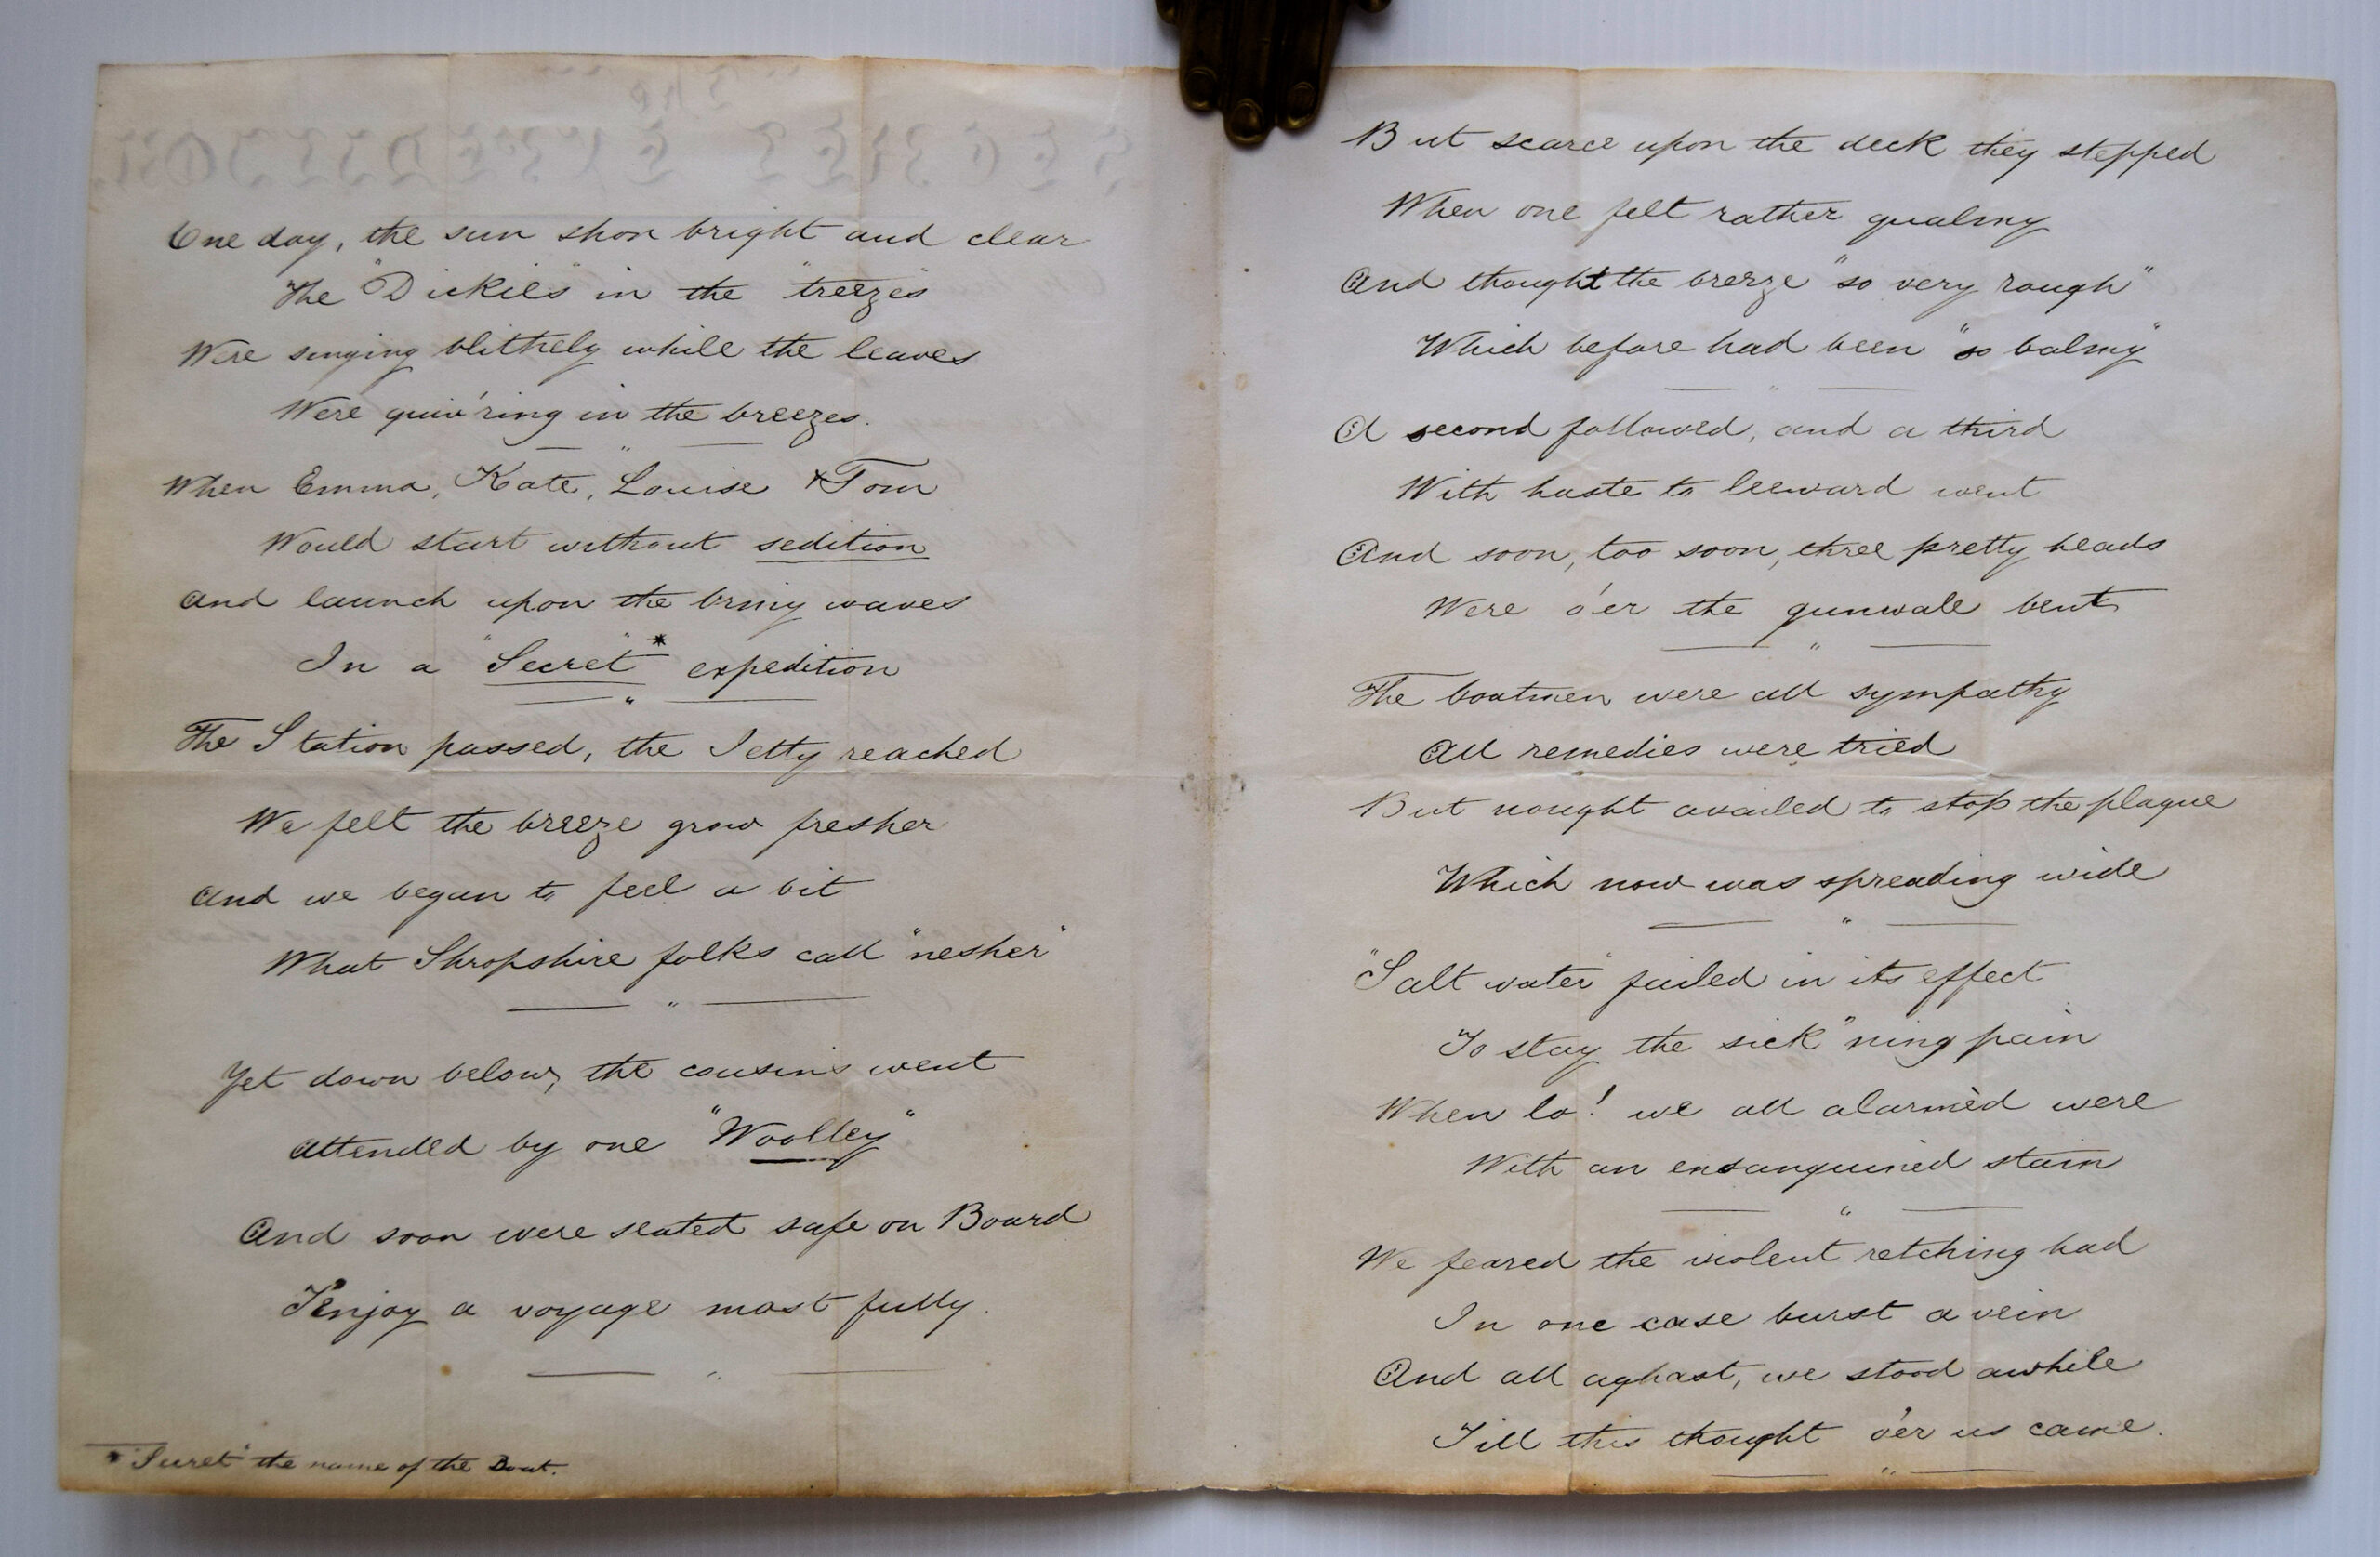 One day, the sun shon bright and clear
The "Dickies" in the "treezes"
Were singing blithely while the leaves
Were quiv'ring in the breezes.
When Emma, Kate, Louise & Tom
Would start without sedition
And launch upon the briny waves
In a "Secret"* expedition
The Station passed, the Jetty reached
We felt the breeze grow fresher
And we began to feel a bit
What Shropshire folks call "nesher"
Yet down below, the cousins went
Attended by one "Woolley"
And soon were seated safe on Board
T'enjoy a voyage most fully.
* "Secret" the name of the Boat.
But scarce upon the deck they stepped
When one felt rather qualmy
And thought the breeze "so very rough"
Which before had been "so balmy"
A second followed, and a third
With haste to leeward went
And soon, too soon, three pretty heads
Were o'er the gunwale bent
The boatmen were all sympathy
All remedies were tried
But nought availed to stop the plague
Which now was spreading wide
"Salt water" failed in its effect
To stay the sick'ning pain
When lo! we all alarmèd were
With an ensanguined stain
We feared the violent retching had
In one case burst a vein
And all aghast, we stood awhile
Till this thought o'er us came.